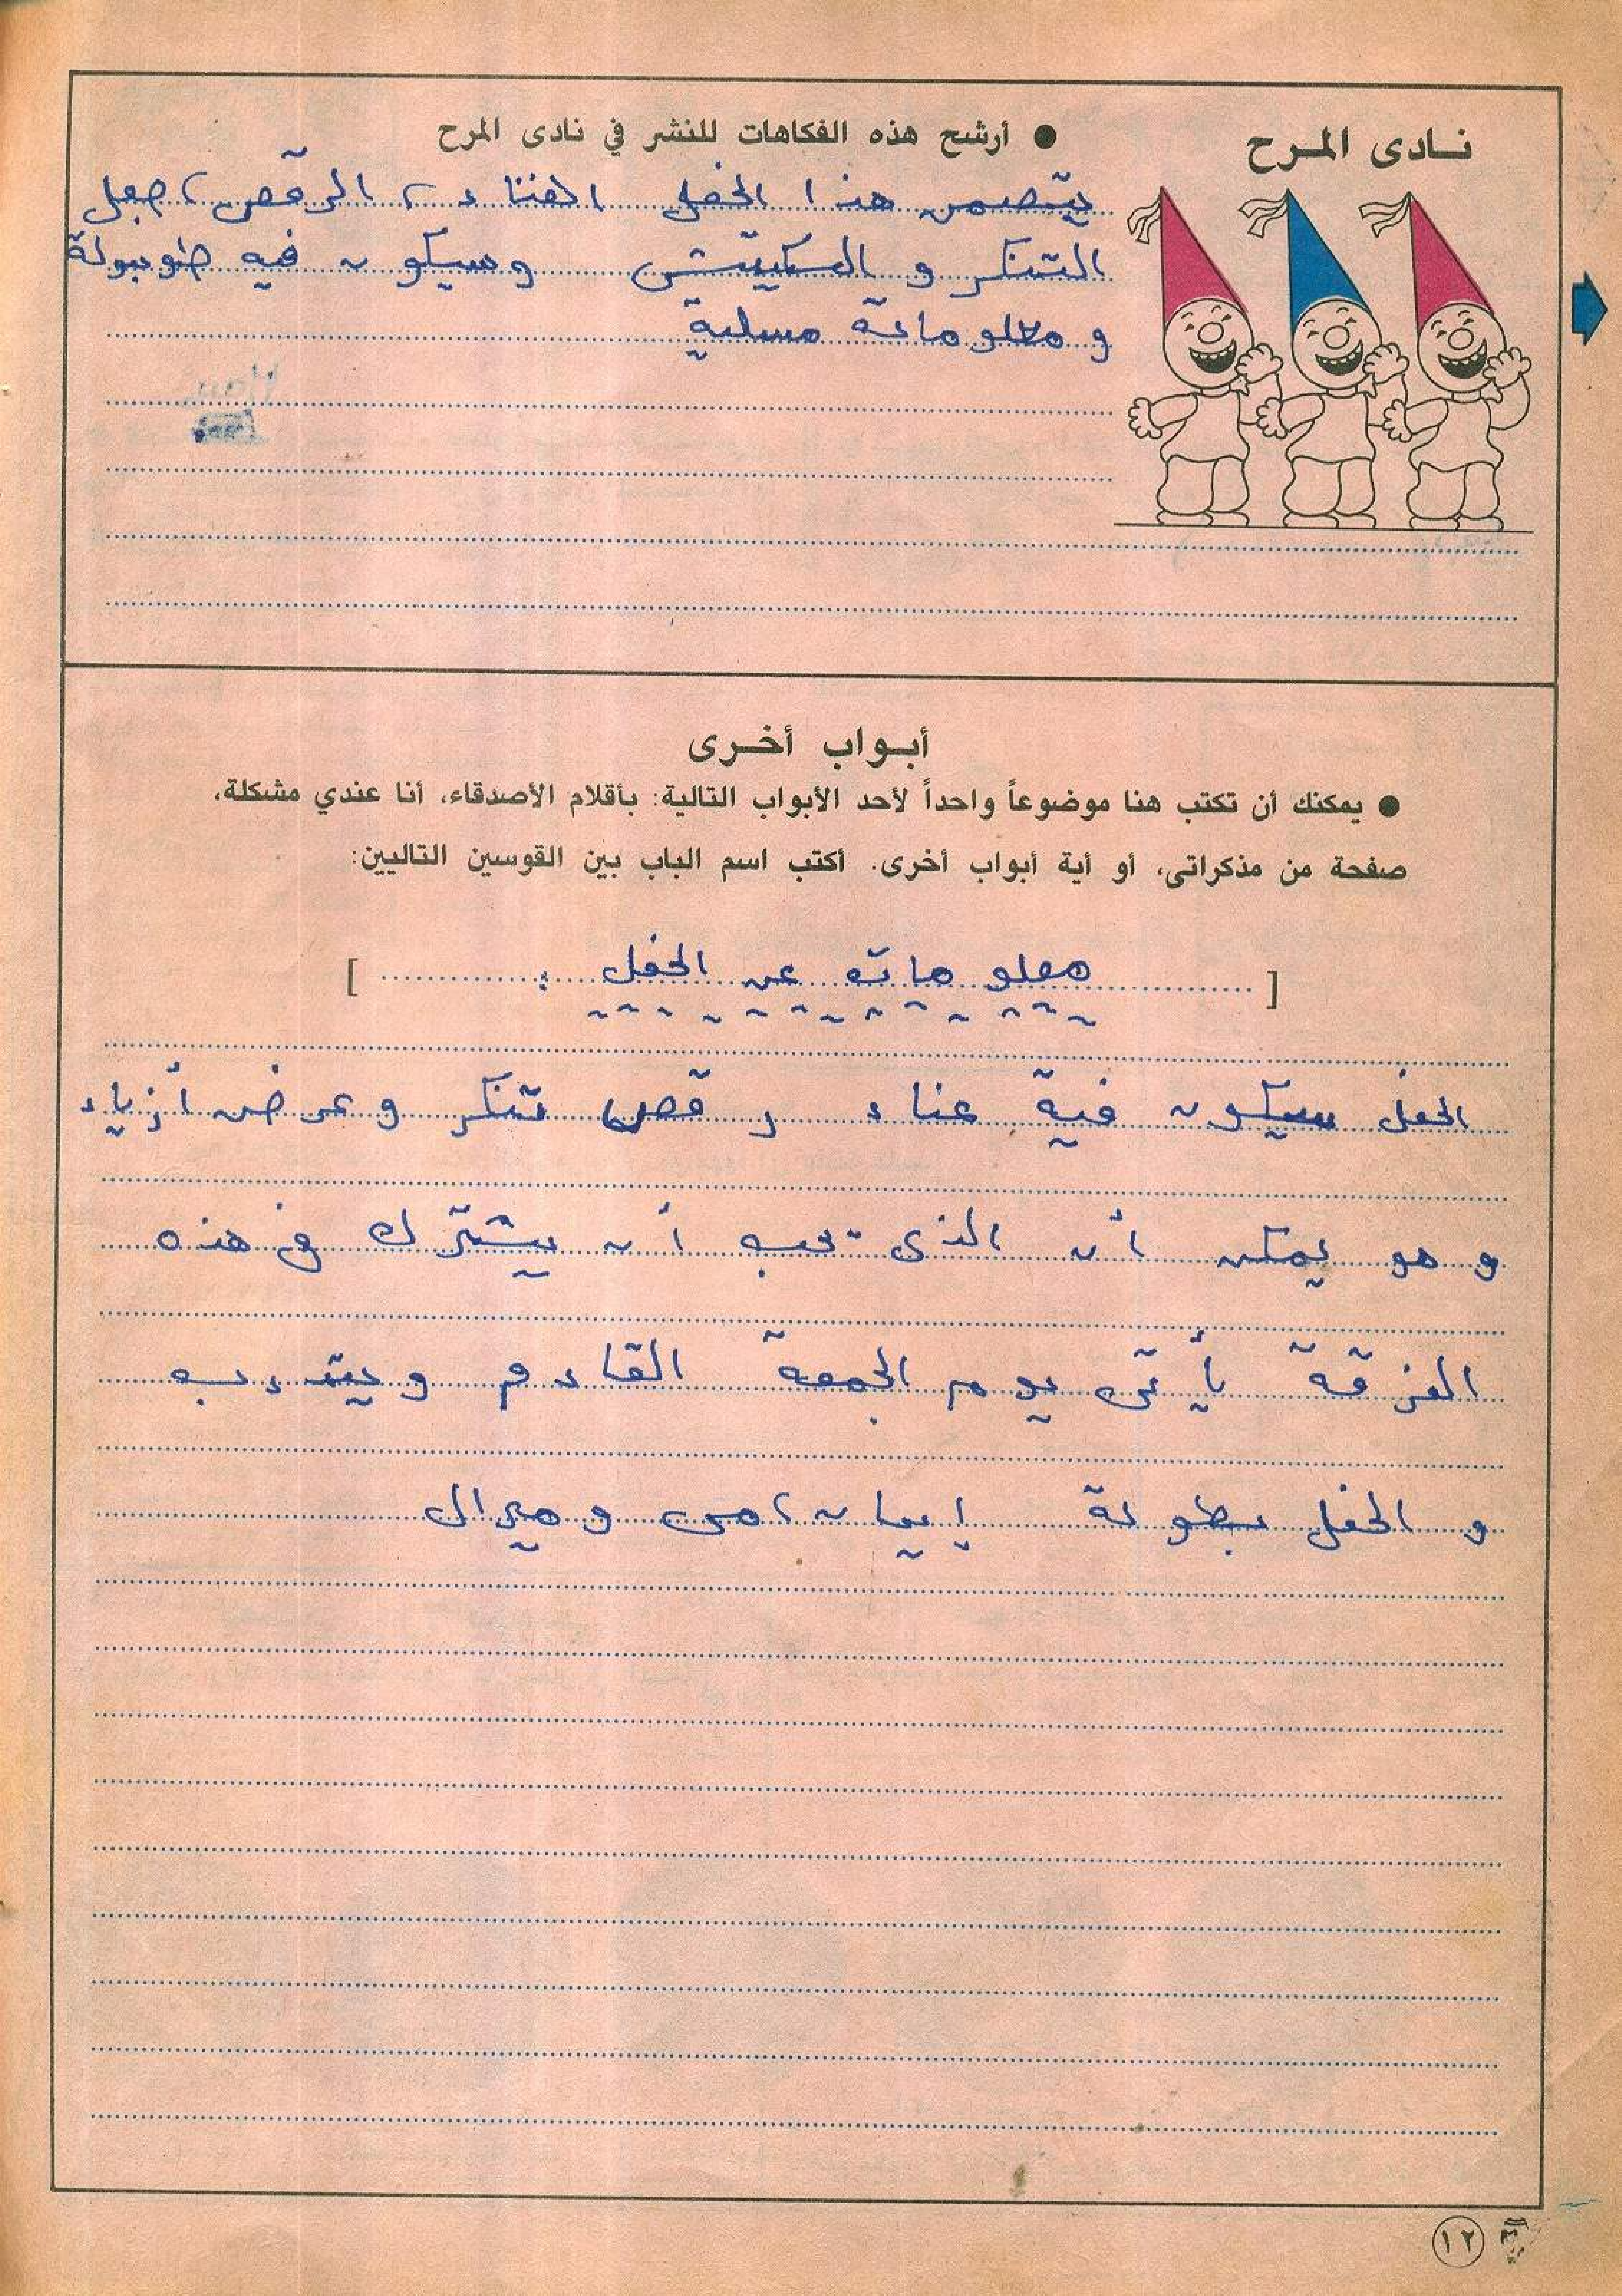 نادى المرح
● أرشح هذه الفكاهات للنشر في نادى المرح
يتضمن هذا الحفل الغناء، الرقص،
التنكر و السكيتش وسيكون فيه
و معلومات مسلية
أبواب أخرى
● يمكنك أن تكتب هنا موضوعاً واحداً لأحد الأبواب التالية: بأقلام الأصدقاء، أنا عندي مشكلة،
صفحة من مذكراتى، أو أية أبواب أخرى. أكتب اسم الباب بين القوسين التاليين:
[ معلومات عن الحفل : ]
الحفل سيكون فية غناء رقص تنكر و عرض أزياء
و هو يمكن أن الذى يحب أن يشترك في هذه
الفرقة يأتى يوم الجمعة القادم ويتدرب
و الحفل بطولة إيمان، مى و ميرال
١٢